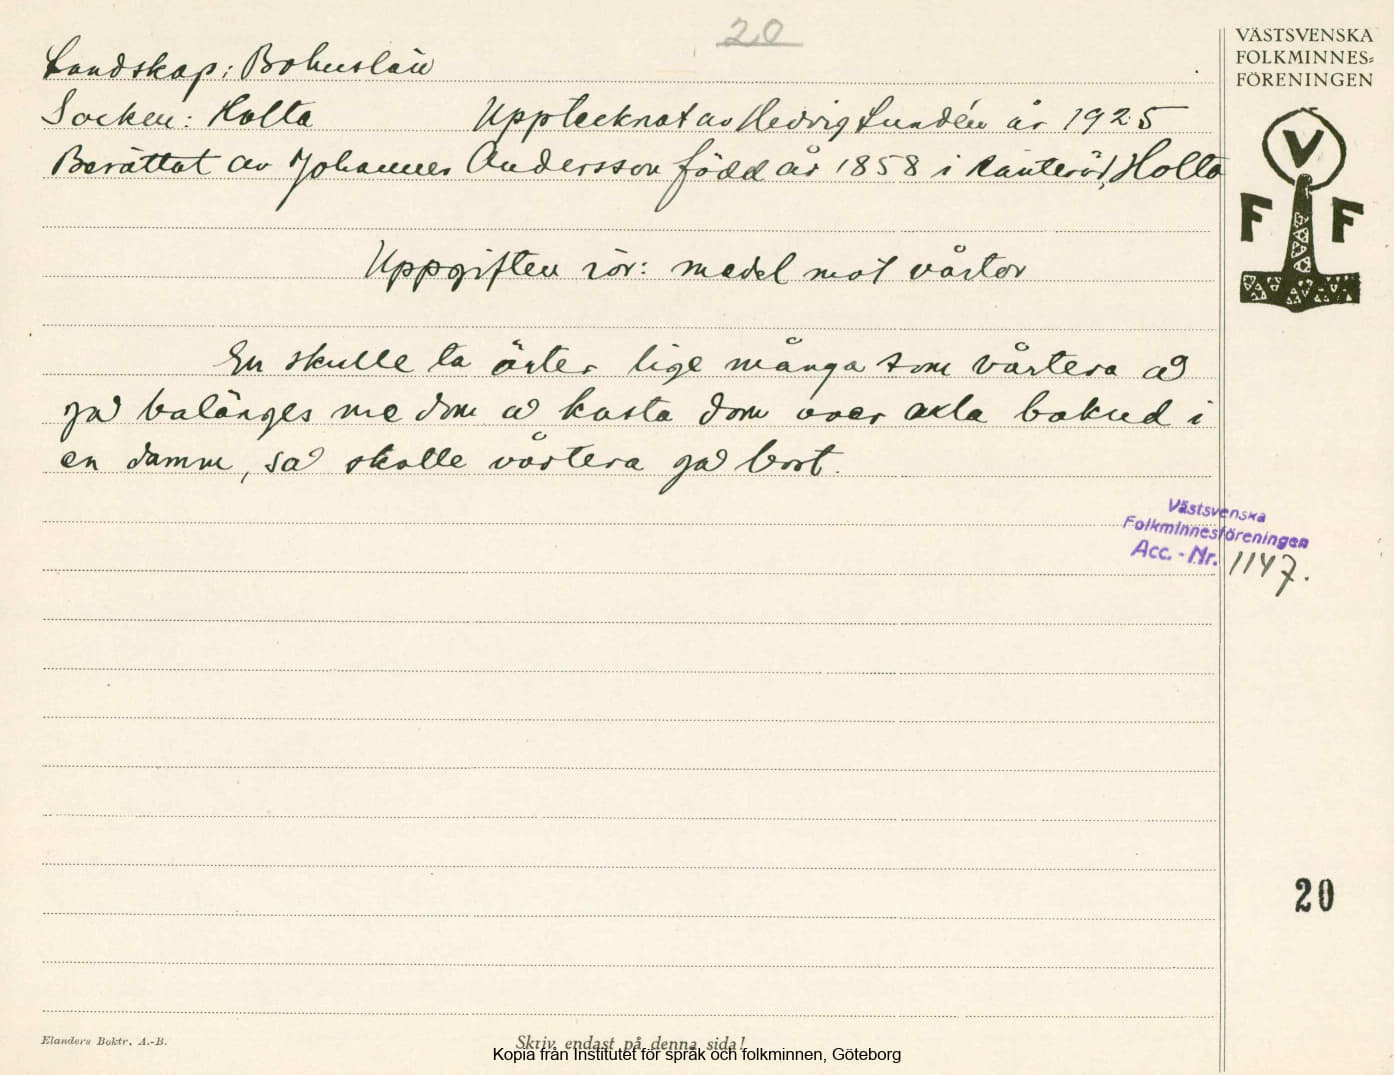 20
VÄSTSVENSKA
FOLKMINNES=
FÖRENINGEN
V
F F
Landskap: Bohuslän
Socken: Holta Upptecknat av Hedvig Lundén år 1925
Berättat av Johannes Andersson född år 1858 i Ranteröd, Holta
Uppgiften rör: medel mot vårtor
En skulle ta ärter lige många som vårtera å
gå balänges me dom å kasta dom over axla bakud i
en damm, så skolle vårtera gå bort.
Västsvenska
Folkminnesföreningen
Acc. - Nr. 1147.
20
Elanders Boktr. A.-B.
Skriv endast på denna sida!
Kopia från Institutet för språk och folkminnen, Göteborg